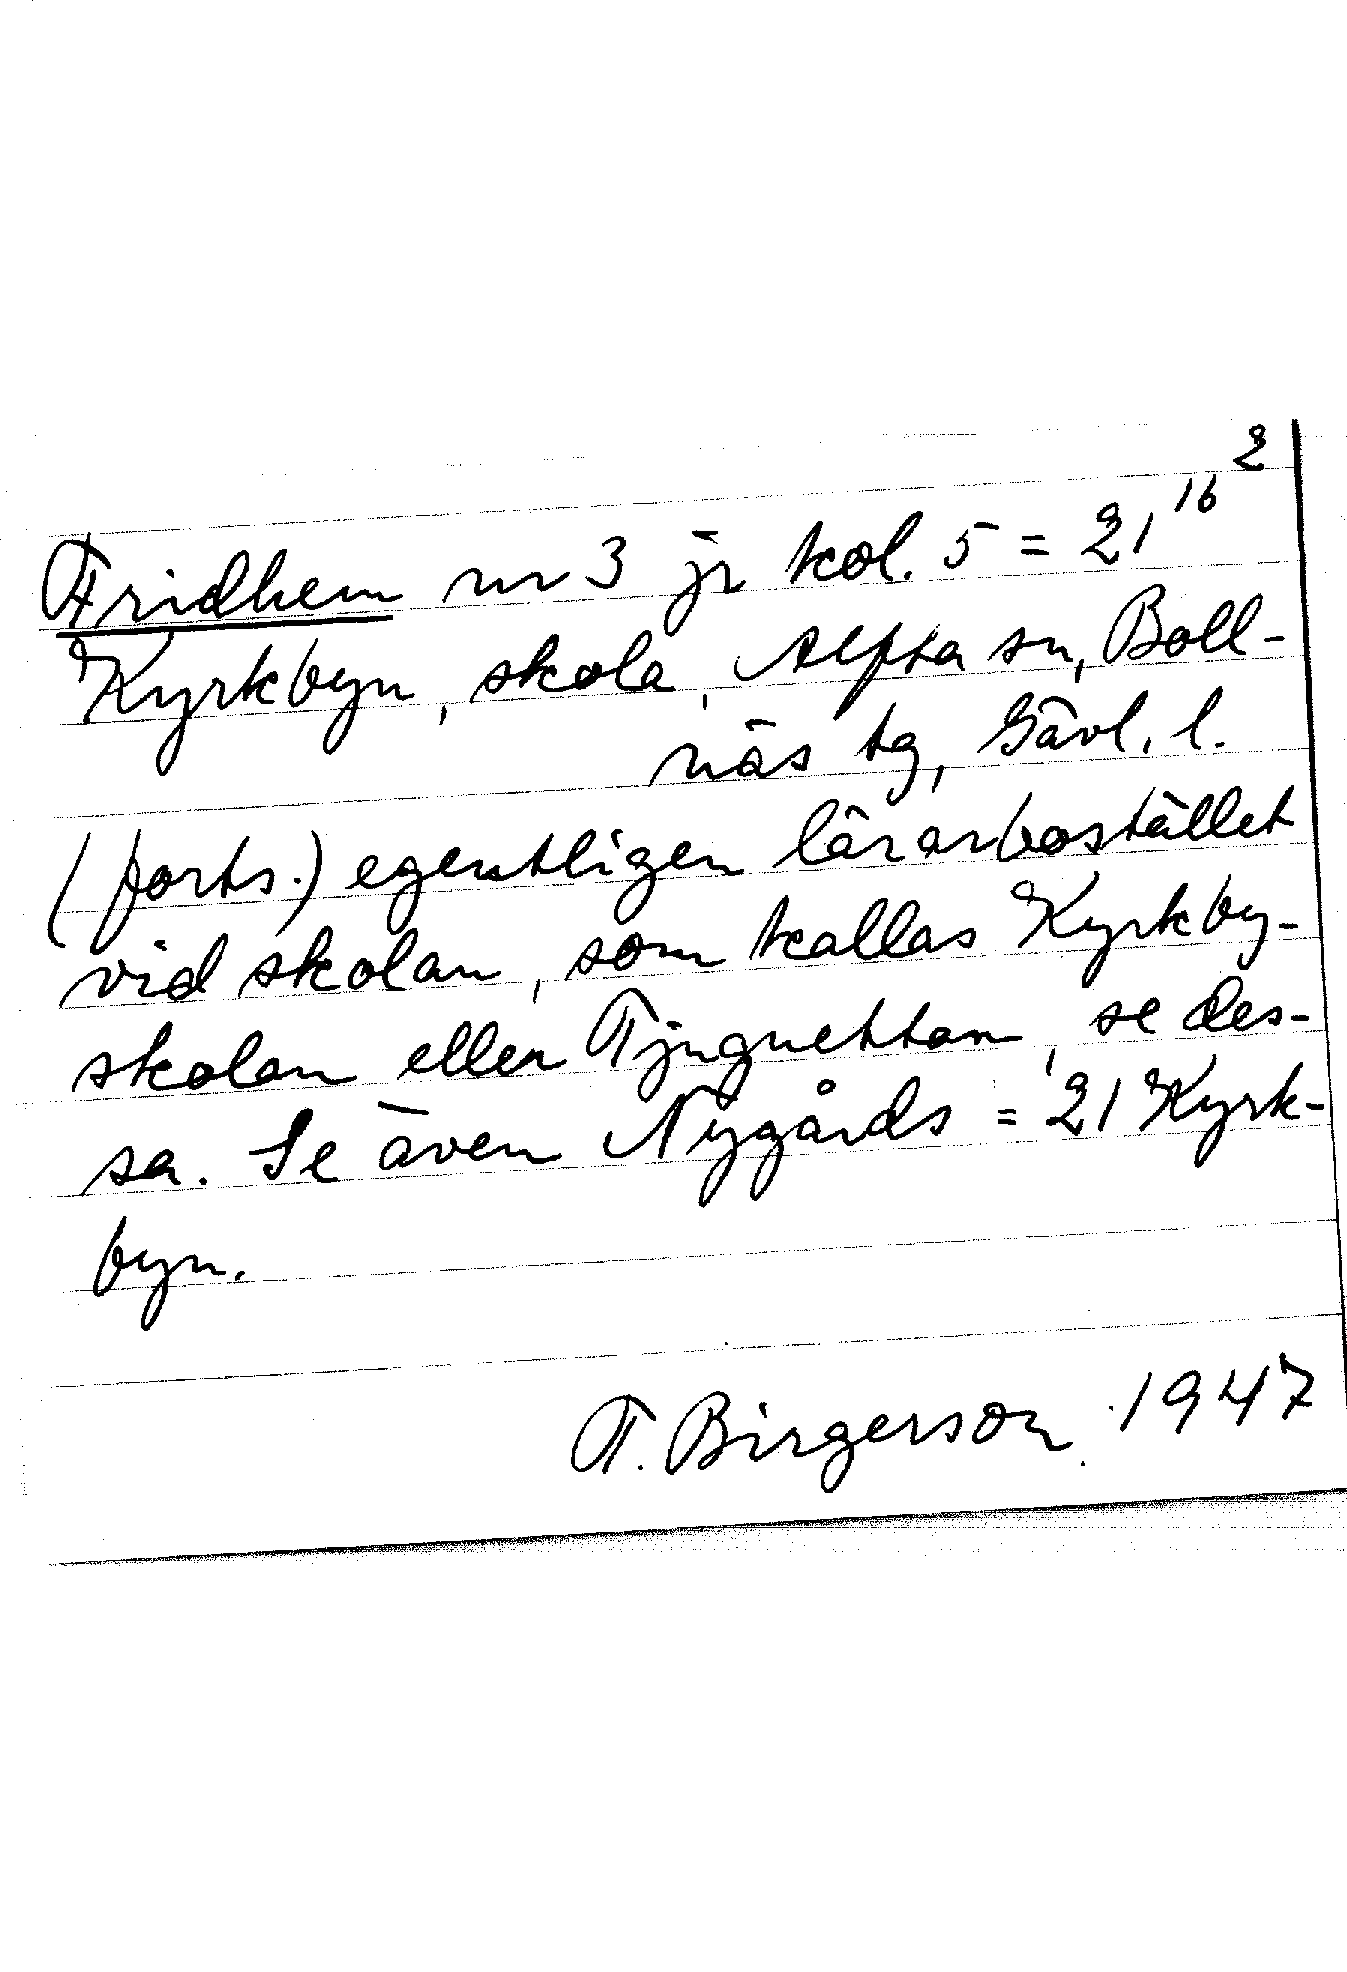 2
Fridhem nr 3 jr kol. 5 = 21¹⁶
Kyrkbyn, skola, Alfta sn, Boll-
näs tg, Gävl. l.
(forts.) egentligen lärarbostället
vid skolan, som kallas Kyrkby-
skolan eller Tjuguettan, se des-
sa. Se även Nygårds = 21 Kyrk-
byn.
T. Birgerson 1947